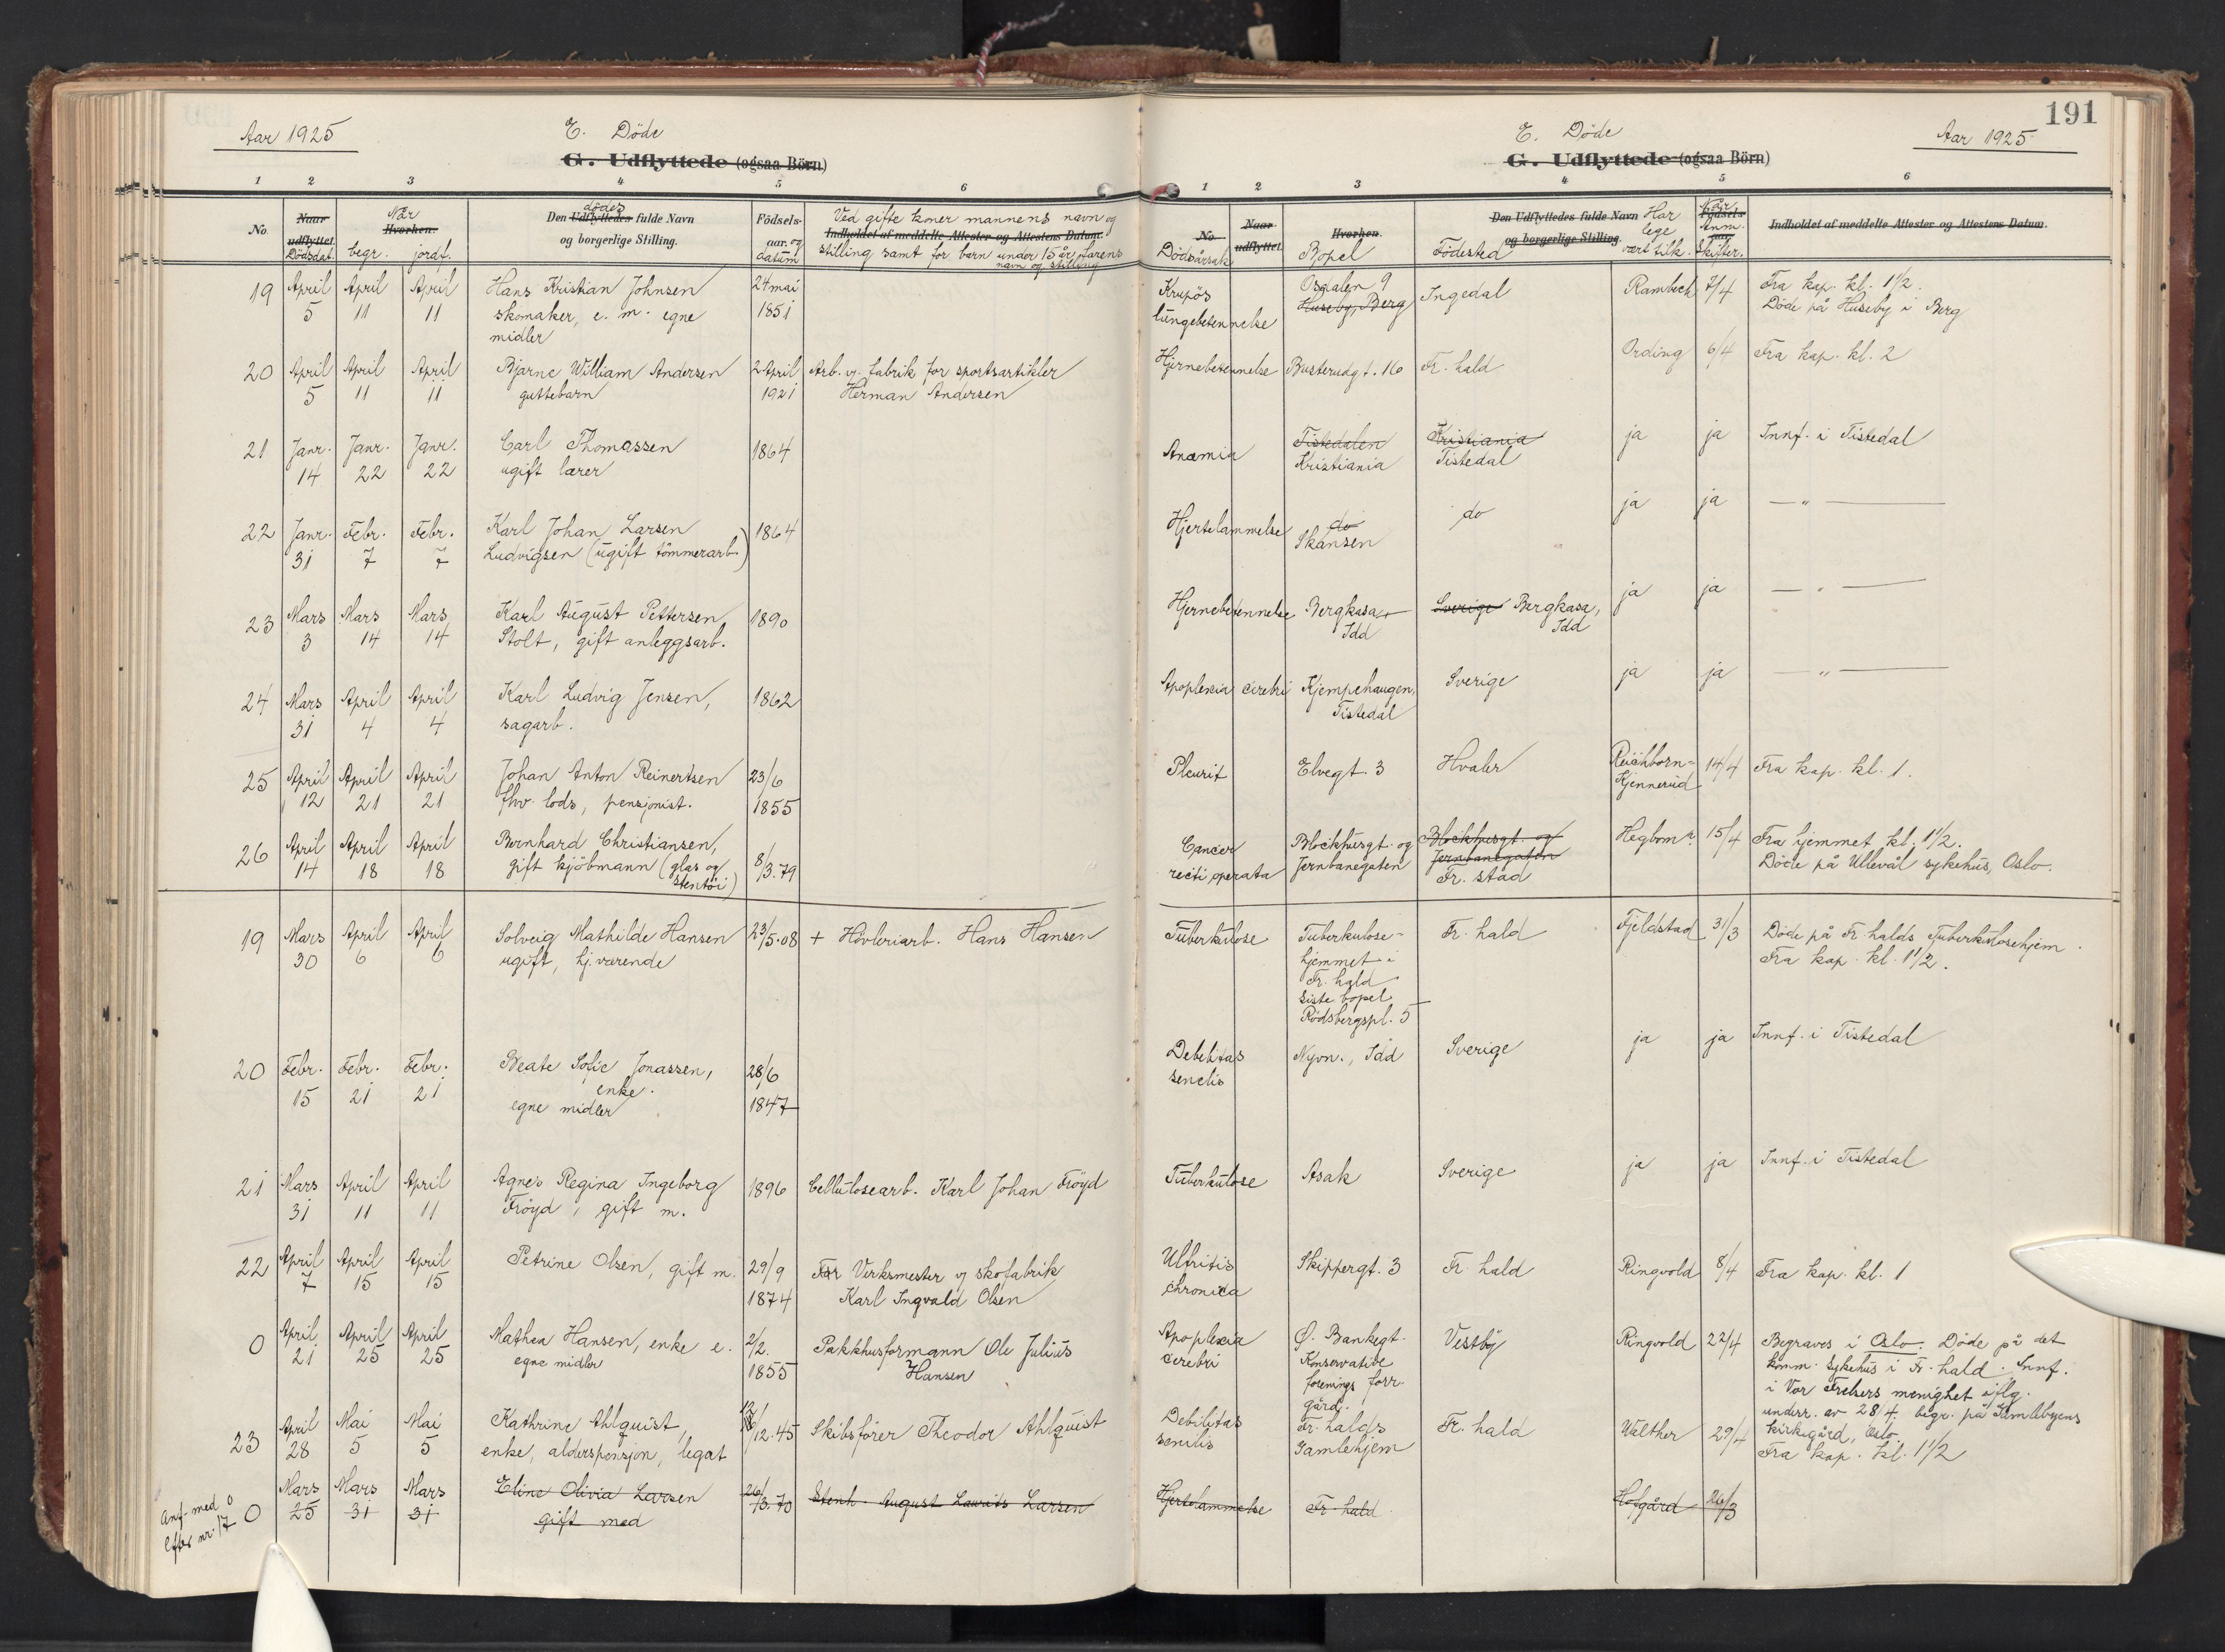 191
Aar 1925
E. Döde
G. Udflyttede (ogsaa Börn)
1 2 3 4 5 6
No.
Naar udflyttet.
Dödsdat.
Når
Hvorhen.
begr. jordf.
dödes
Den Udflyttedes fulde Navn
og borgerlige Stilling.
Födsels-
aar. og
datum
Ved gifte koner mannens navn og
Indholdet af meddelte Attester og Attestens Datum.
stilling samt for barn under 15 år, farens
navn og stilling
E. Döde
G. Udflyttede (ogsaa Börn)
Aar 1925
1 2 3 4 5 6
No.
Dödsårsak
Naar
udflyttet.
Hvorhen.
Bopel
Den Udflyttedes fulde Navn
og borgerlige Stilling.
Födested
Har
lege
vært tilk.
Når
Födsels-
Anm.
aar.
Skifter.
Indholdet af meddelte Attester og Attestens Datum.
19 April April April Hans Kristian Johnsen 24 mai
5 11 11 skomaker, e. m. egne 1851
midler
Krupös Osdalen 9 Ingedal Rambech 7/4 Fra kap. kl. 1 1/2.
lungebetennelse Huseby, Berg Döde på Huseby i Berg
20 April April April Bjarne William Andersen 2 April Arb. v. fabrik for sportsartikler
5 11 11 guttebarn 1921 Herman Andersen
Hjernebetennelse Busterudgt. 16 Fr. hald Ording 6/4 Fra kap. kl. 2
21 Janr. Janr. Janr. Carl Thomassen 1864
14 22 22 ugift lærer
Anæmia Tistedalen Kristiania ja ja Innf. i Tistedal
Kristiania Tistedal
22 Janr. Febr. Febr. Karl Johan Larsen 1864
31 7 7 Ludvigsen (ugift tömmerarb.)
Hjertelammelse do do ja ja — " —
Skansen
23 Mars Mars Mars Karl August Pettersen 1890
3 14 14 Stolt, gift anleggsarb.
Hjernebetennelse Bergkasa Sverige Bergkasa, ja ja — " —
Idd Idd
24 Mars April April Karl Ludvig Jensen, 1862
31 4 4 sagarb.
Apoplexia cerebri Kjempehaugen, Sverige ja ja — " —
Tistedal
25 April April April Johan Anton Reinertsen 23/6
12 21 21 fhv. lods, pensjonist. 1855
Pleurit Elvegt. 3 Hvaler Reichborn- 14/4 Fra kap. kl. 1.
Kjennerud
26 April April April Bernhard Christiansen, 8/3.79
14 18 18 gift kjöbmann (glas og
stentöi)
Cancer Blockhusgt. og Blockhusgt. og Hegbom 15/4 Fra hjemmet kl. 1 1/2.
recti operata Jernbanegaten Jernbanegaten Döde på Ullevål sykehus, Oslo.
Fr. stad
19 Mars April April Solveig Mathilde Hansen 23/5.08 + Hövleriarb. Hans Hansen
30 6 6 ugift, hj. værende
Tuberkulose Tuberkulose- Fr. hald Fjeldstad 31/3 Döde på Fr. halds Tuberkulosehjem.
hjemmet i Fra kap. kl. 1 1/2.
Fr. hald
siste bopel
Rödsbergspl. 5
20 Febr. Febr. Febr. Beate Sofie Jonassen, 28/6
15 21 21 enke. 1847
egne midler
Debelitas Nyvn., Idd Sverige ja ja Innf. i Tistedal
senelis
21 Mars April April Agnes Regina Ingeborg 1896 Cellulosearb. Karl Johan Fröyd
31 11 11 Fröyd, gift m.
Tuberkulose Asak Sverige ja ja Innf. i Tistedal
22 April April April Petrine Olsen, gift m. 29/9 Verksmester v skofabrik
7 15 15 1874 Karl Ingvald Olsen
Skippergt. 3 Fr. hald Ringvold 8/4 Fra kap. kl. 1
chronica
0 April April April Mathea Hansen, enke e. 2/2. Pakkhusformann Ole Julius
21 25 25 egne midler 1855 Hansen
Apoplexia Ø. Bankegt. Vestby Ringvold 22/4 Begraves i Oslo. Döde på det
cerebri Konservative komm. sykehus i Fr. hald. Innf.
forenings forr. i Vor Frelsers menighet iflg.
gård. underr. av 28/4. begr. på Gamlebyens
kirkegård, Oslo
23 April Mai Mai Kathrine Ahlquist, /12.45 Skibsförer Theodor Ahlquist
28 5 5 enke, alderspensjon, legat
Debilitas Fr. halds Fr. hald Walther 29/4 Fra kap. kl. 1 1/2
senilis Gamlehjem
Anf. med 0
efter nr. 17 0 Mars Mars Mars Eline Olivia Larsen 26/3.70 Stenh. August Laurits Larsen
25 31 31 gift med
Hjertelammelse Fr. hald Hofgård 26/3